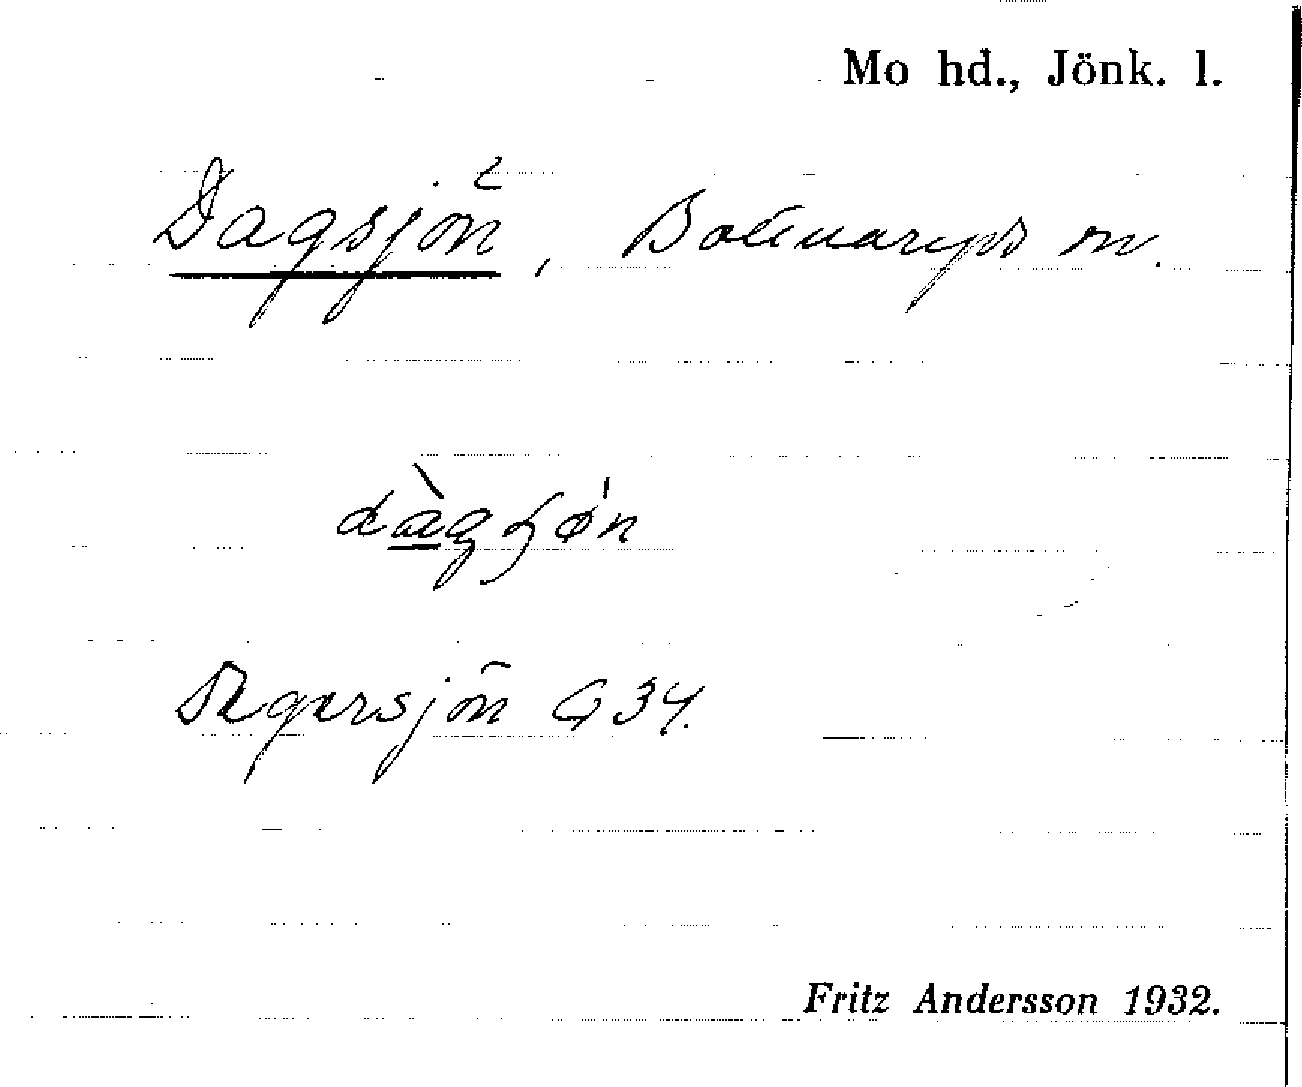 Mo hd., Jönk. l.
Dagsjön, Bottnaryds sn.
Degersjön G 34.
Fritz Andersson 1932.